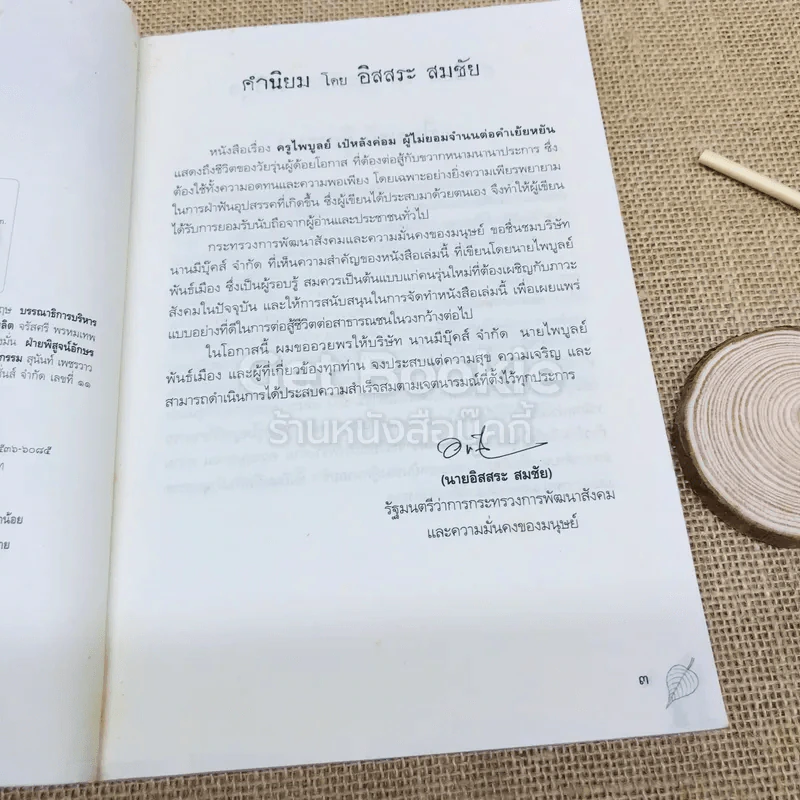 คำนิยม โดย อิสสระ สมชัย
หนังสือเรื่อง ครูไพบูลย์ เป๋หลังค่อม ผู้ไม่ยอมจำนนต่อคำเย้ยหยัน
แสดงถึงชีวิตของวัยรุ่นผู้ด้อยโอกาส ที่ต้องต่อสู้กับขวากหนามนานาประการ ซึ่ง
ต้องใช้ทั้งความอดทนและความพอเพียง โดยเฉพาะอย่างยิ่งความเพียรพยายาม
ในการฝ่าฟันอุปสรรคที่เกิดขึ้น ซึ่งผู้เขียนได้ประสบมาด้วยตนเอง จึงทำให้ผู้เขียน
ได้รับการยอมรับนับถือจากผู้อ่านและประชาชนทั่วไป
กระทรวงการพัฒนาสังคมและความมั่นคงของมนุษย์ ขอชื่นชมบริษัท
นานมีบุ๊คส์ จำกัด ที่เห็นความสำคัญของหนังสือเล่มนี้ ที่เขียนโดยนายไพบูลย์
พันธ์เมือง ซึ่งเป็นผู้รอบรู้ สมควรเป็นต้นแบบแก่คนรุ่นใหม่ที่ต้องเผชิญกับภาวะ
สังคมในปัจจุบัน และให้การสนับสนุนในการจัดทำหนังสือเล่มนี้ เพื่อเผยแพร่
แบบอย่างที่ดีในการต่อสู้ชีวิตต่อสาธารณชนในวงกว้างต่อไป
ในโอกาสนี้ ผมขออวยพรให้บริษัท นานมีบุ๊คส์ จำกัด นายไพบูลย์
พันธ์เมือง และผู้ที่เกี่ยวข้องทุกท่าน จงประสบแต่ความสุข ความเจริญ และ
สามารถดำเนินการได้ประสบความสำเร็จสมตามเจตนารมณ์ที่ตั้งไว้ทุกประการ
GetBookie
ร้านหนังสือบุ๊คกี้
(นายอิสสระ สมชัย)
รัฐมนตรีว่าการกระทรวงการพัฒนาสังคม
และความมั่นคงของมนุษย์
๓
บรรณาธิการบริหาร
จรัสศรี พรหมเทพ
ฝ่ายพิสูจน์อักษร
สุนันท์ เพชรวาว
จำกัด เลขที่ ๑๑
๕๓๖-๖๐๘๕